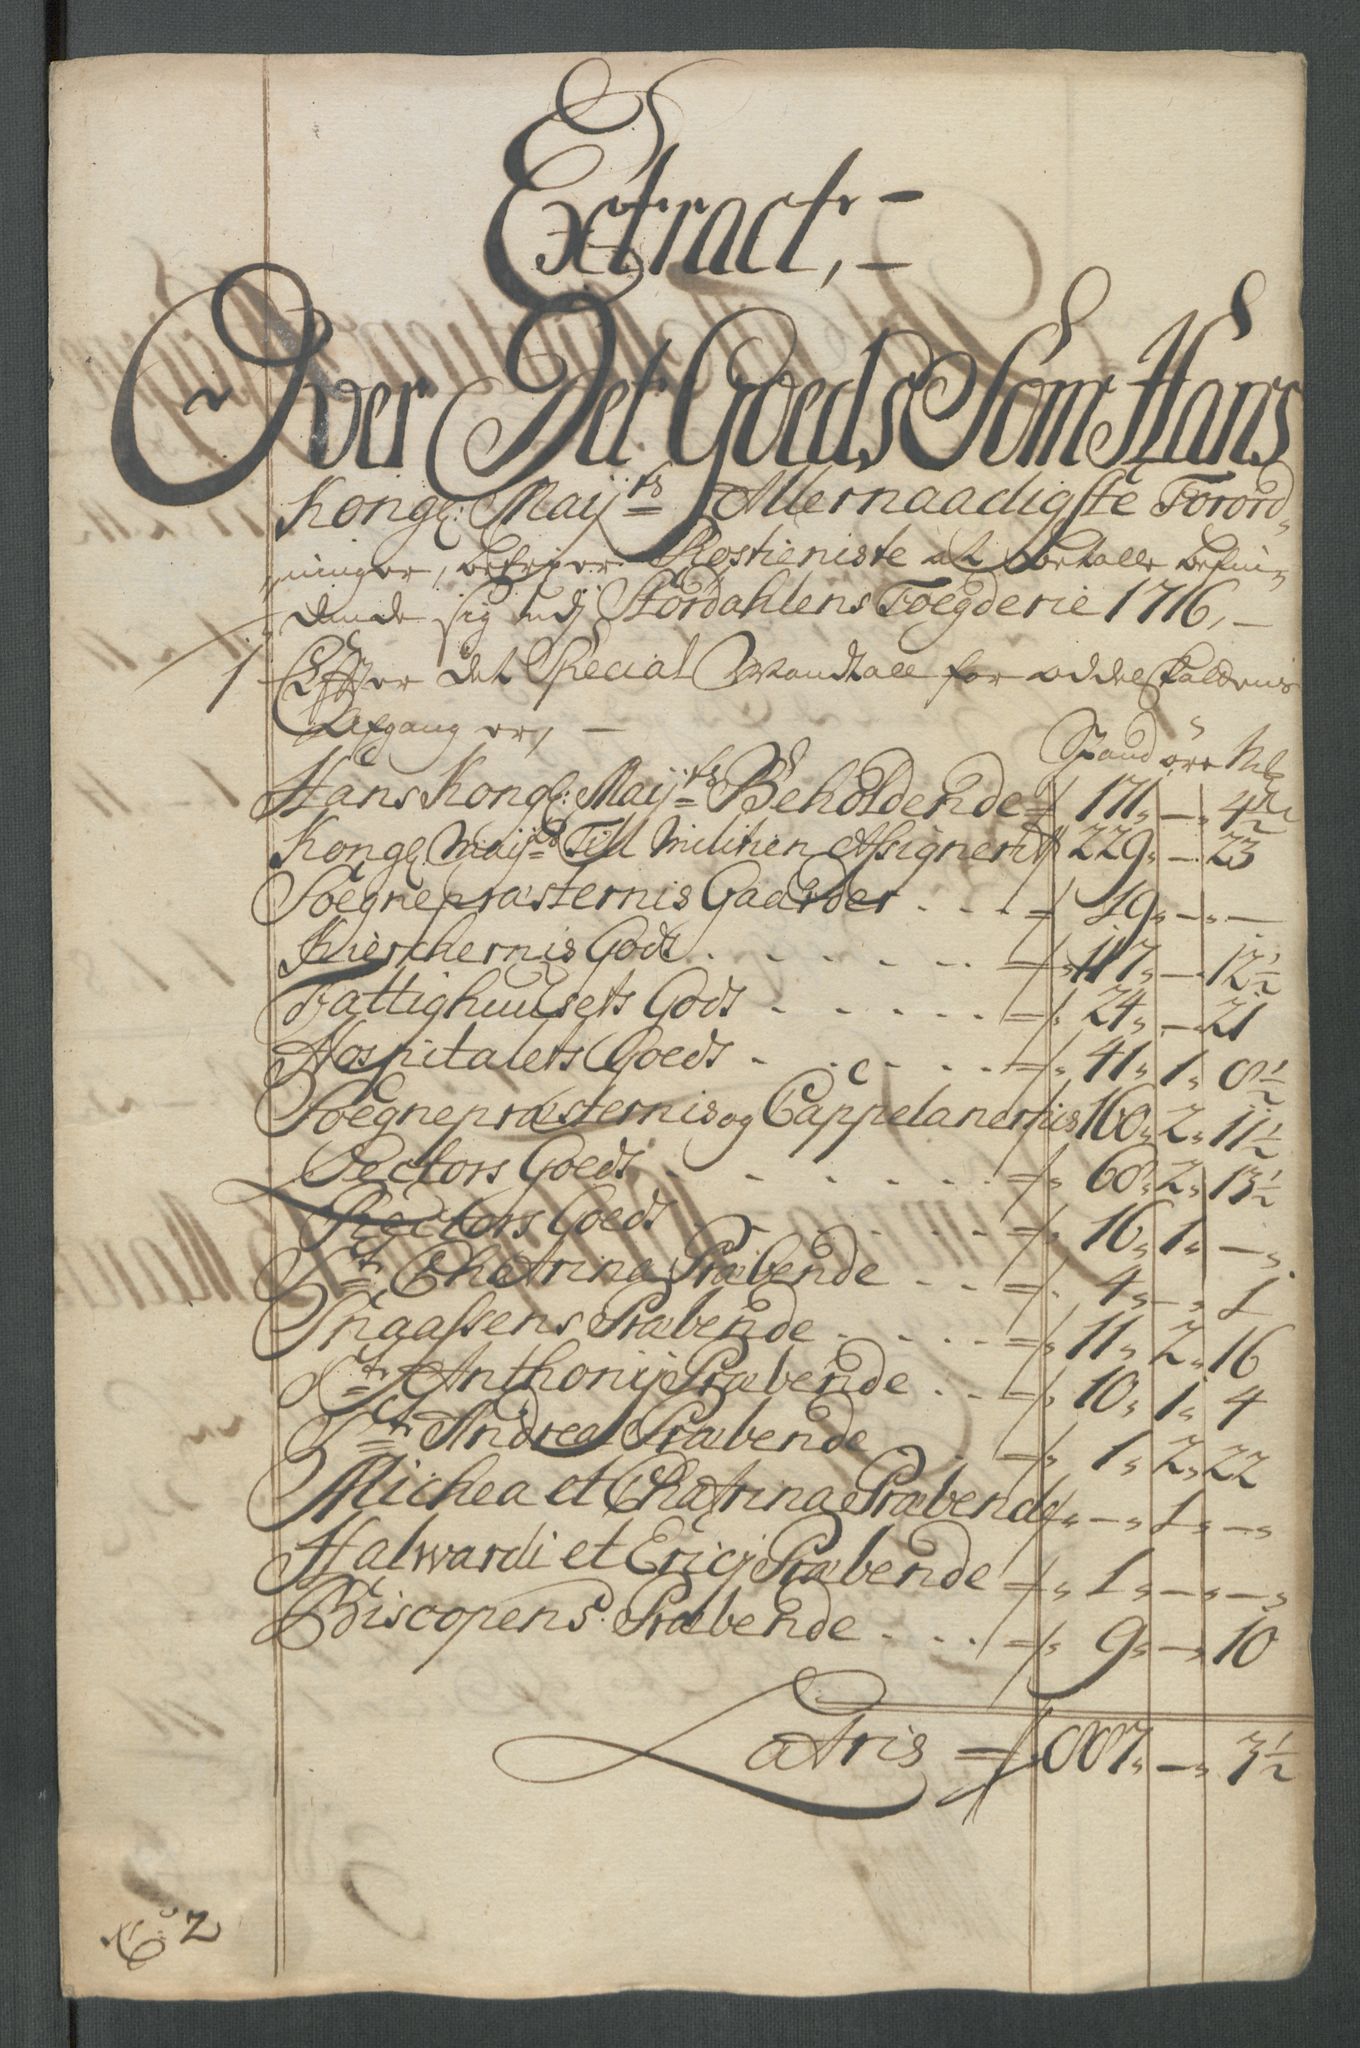 Extract, —
Over Det Goeds Som Hans
Kongl: Maijts Allernaadigste Forord-
ninger, befrier Rostieniste at betalle befin-
dende sig udj Stördahlens Foegderie 1716, —
1. Effter det Special Mandtall for oddelskattens
Afgang er, —
Spand öre Mkl
Hans Kongl: Maijts Beholdende 171 — 4½
Kongl Maijts Till Militien Assignerit 229 — 23
Soegnepræsternis Gaarder . . . 19 — —
Kierchernis Gods . . . . . . 117 — 12½
Fattighuusets Gods . . . . . 24 — 21
Hospitalets Goeds . . . . . 41 1 8½
Soegnepræsternis og Cappelanernis 160 2 11½
Lectors Goeds . . . . . . 68 2 13½
Rectors Goeds . . . . . 16 1 —
St Chatrina Præbende . . 4 — 1
Ingassens Præbende . . . . 11 2 16
St Anthonij Præbende . . 10 1 4
St Andrea Præbende . 1 2 22
Michea et Chatrina Præbende — 1 —
Halwardi et Ericij Præbende 1 — —
Biscopens Præbende . . . . 9 — 10
Latris 887 — 3½
2